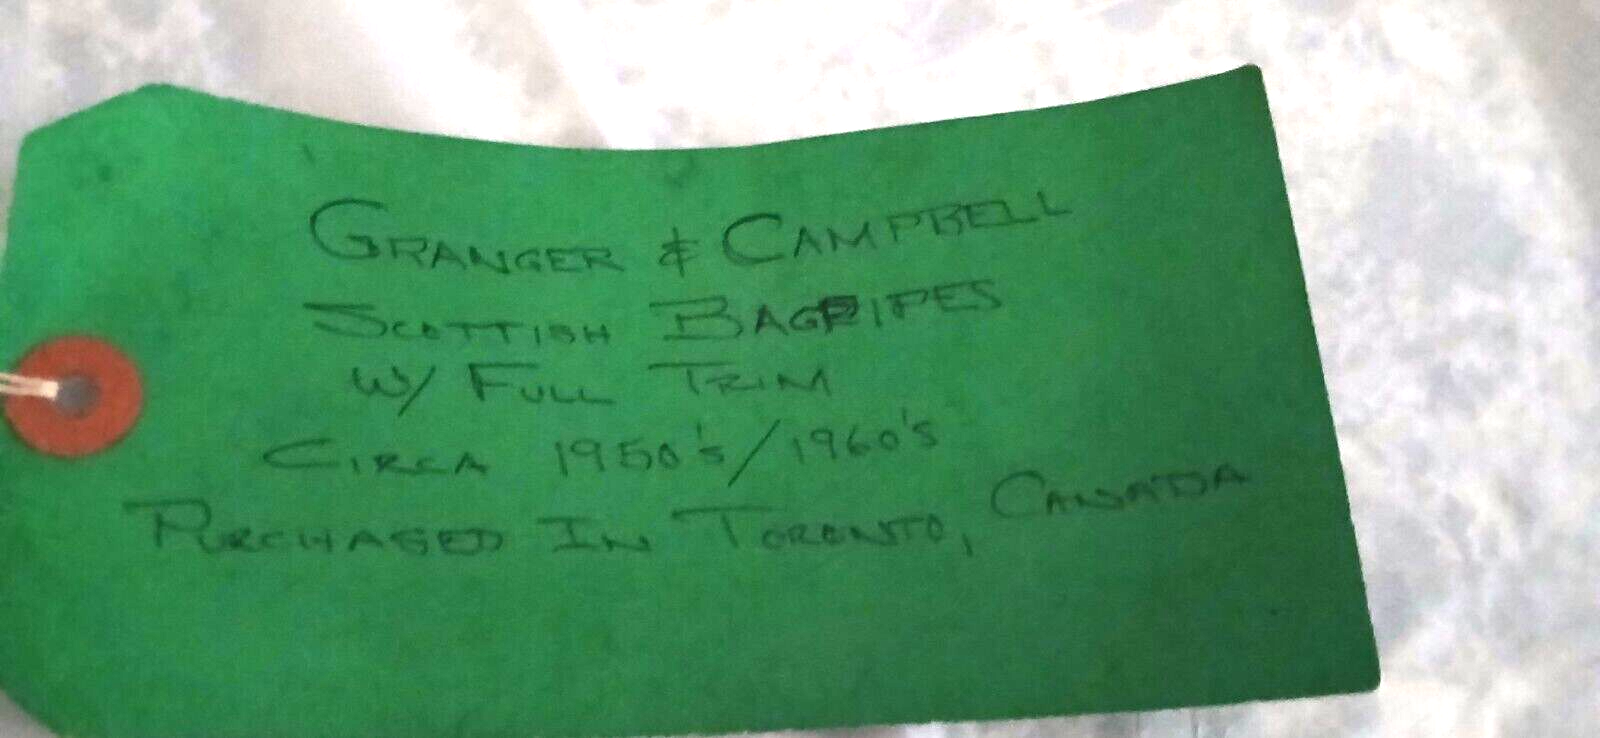 GRANGER & CAMPBELL
SCOTTISH BAGPIPES
W/ FULL TRIM
CIRCA 1950's/1960's
PURCHASED IN TORONTO, CANADA